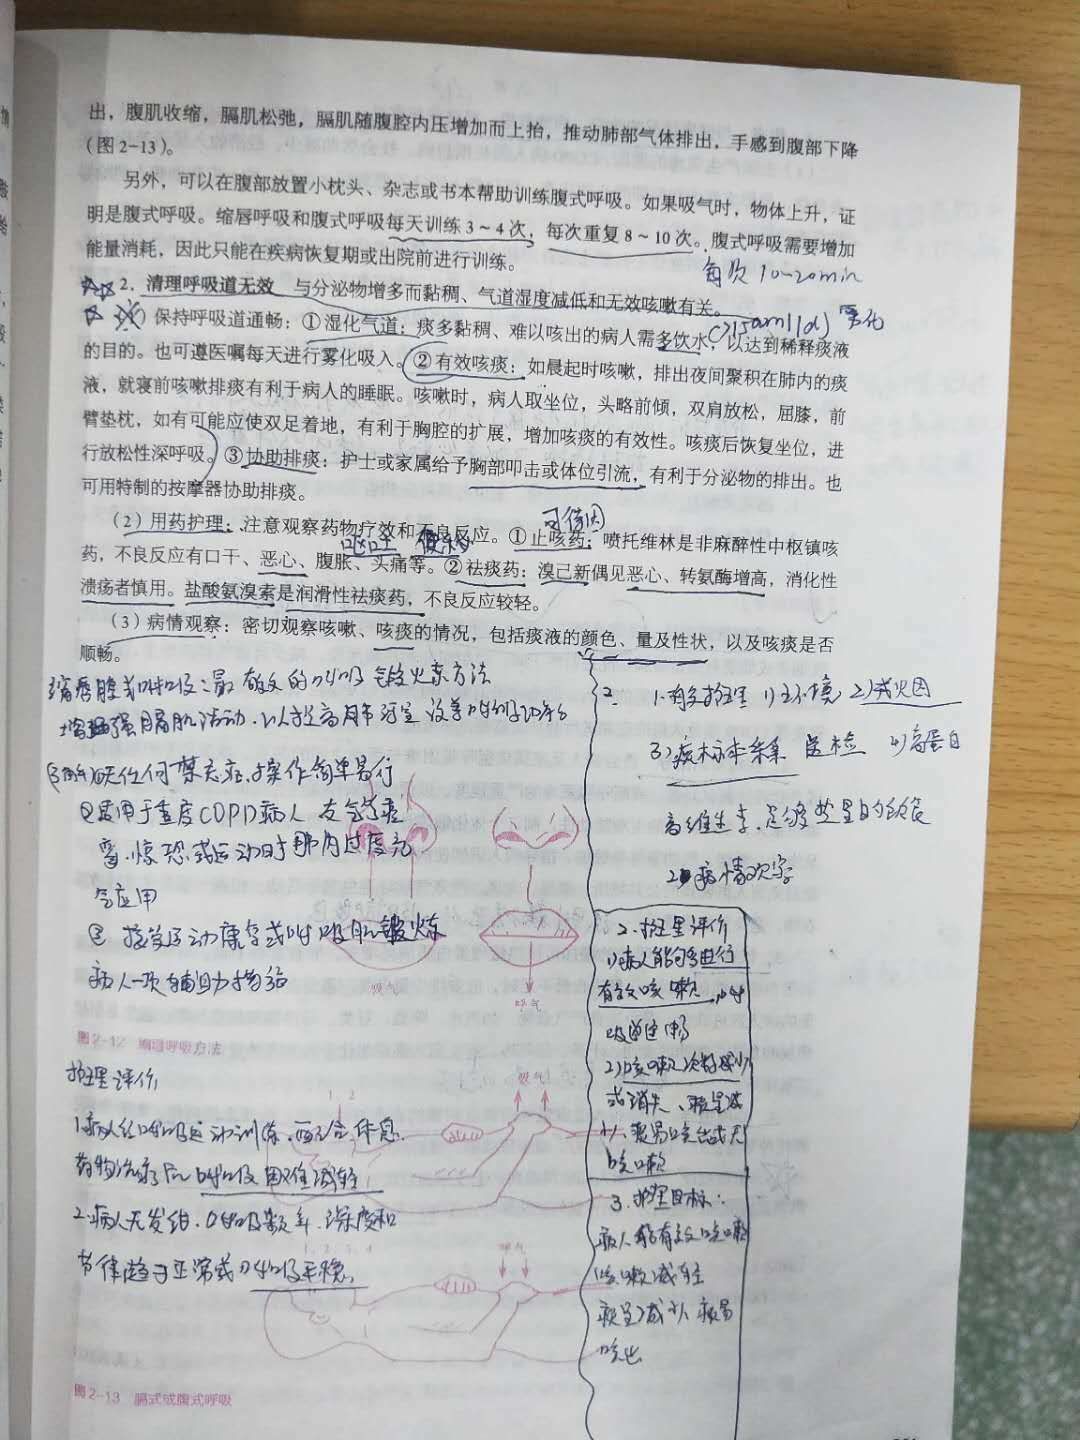 出，腹肌收缩，膈肌松弛，膈肌随腹腔内压增加而上抬，推动肺部气体排出，手感到腹部下降
（图2-13）。
另外，可以在腹部放置小枕头、杂志或书本帮助训练腹式呼吸。如果吸气时，物体上升，证
明是腹式呼吸。缩唇呼吸和腹式呼吸每天训练3～4次，每次重复8～10次。腹式呼吸需要增加
能量消耗，因此只能在疾病恢复期或出院前进行训练。
每次10-20min
2. 清理呼吸道无效 与分泌物增多而黏稠、气道湿度减低和无效咳嗽有关。
）保持呼吸道通畅：①湿化气道：痰多黏稠、难以咳出的病人需多饮水，以达到稀释痰液
的目的。也可遵医嘱每天进行雾化吸入。②有效咳痰：如晨起时咳嗽，排出夜间聚积在肺内的痰
液，就寝前咳嗽排痰有利于病人的睡眠。咳嗽时，病人取坐位，头略前倾，双肩放松，屈膝，前
臂垫枕，如有可能应使双足着地，有利于胸腔的扩展，增加咳痰的有效性。咳痰后恢复坐位，进
行放松性深呼吸。③协助排痰：护士或家属给予胸部叩击或体位引流，有利于分泌物的排出。也
可用特制的按摩器协助排痰。
（2）用药护理：注意观察药物疗效和不良反应。①止咳药：喷托维林是非麻醉性中枢镇咳
可待因
药，不良反应有口干、恶心、腹胀、头痛等。②祛痰药：溴己新偶见恶心、转氨酶增高，消化性
呕吐 便秘
溃疡者慎用。盐酸氨溴索是润滑性祛痰药，不良反应较轻。
（3）病情观察：密切观察咳嗽、咳痰的情况，包括痰液的颜色、量及性状，以及咳痰是否
顺畅。
缩唇腹式呼吸：最有效的呼吸锻炼方法
增强膈肌活动，以提高肺
无任何禁忌症，操作简单易行
②适用于重度COPD病人 支气管痉
挛、惊恐或运动时肺内过度充
气应用
③ 接受运动康复或呼吸肌锻炼
病人一项辅助措施
吸气
呼气
图2-12 缩唇呼吸方法
护理评价
1.病人经呼吸运动训练、配合休息、
药物治疗后呼吸困难减轻
2.病人无发绀，呼吸频率、深度和
节律趋于正常或呼吸平稳。
吸气
1 2
呼气
1、2、3、4
图2-13 膈式或腹式呼吸
2. 1.一般护理 1)环境 2)戒烟
3)痰标本采集 送检 4)高蛋白
高维生素、足够热量的饮食
2 病情观察
2. 护理评价
1)病人能够进行
有效咳嗽，呼
吸道通畅
2)咳嗽次数减少
或消失、痰量减
少、痰易咳出或无
咳嗽
3. 护理目标：
病人能有效咳嗽
咳嗽减轻
痰量减少 痰易
咳出